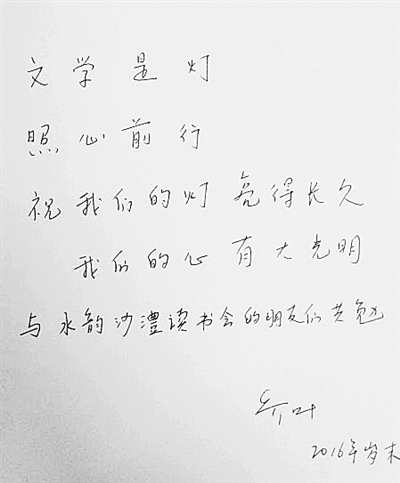 文学是灯
照心前行
祝我们的灯亮得长久
我们的心有大光明
与水韵沙澧读书会的朋友们共勉
乔叶
2016年岁末